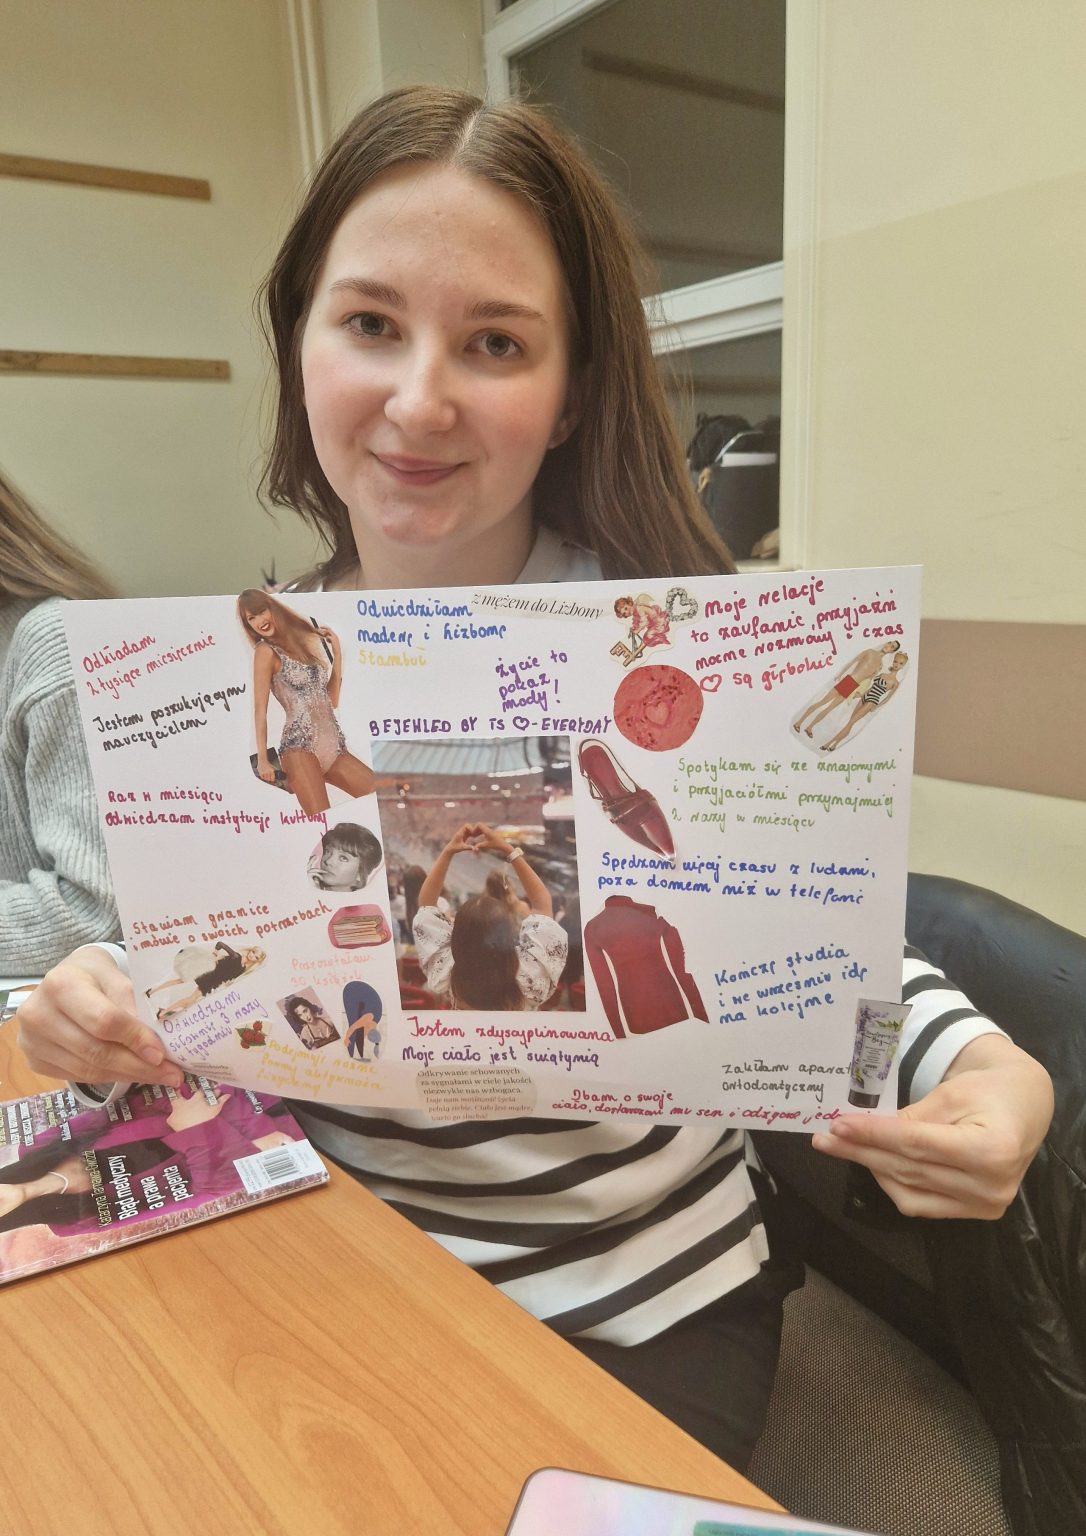 Odkładam
2 tysiące miesięcznie
Jestem poszukującym
nauczycielem
Raz w miesiącu
odwiedzam instytucję kultury
Stawiam granice
i mówię o swoich potrzebach
Przeczytałam
30 książek
Odwiedzam
siłownię 3 razy
w tygodniu
Podejmuję różne
formy aktywności
fizycznej
Odwiedziłam
z mężem do Lizbony
Maderę i Lizbonę
Stambuł
życie to
pokaz
mody!
BEJEWLED BY TS ♡-EVERYDAY
Jestem zdyscyplinowana
Moje ciało jest świątynią
Odkrywanie schowanych
za sygnałami w ciele jakości
niezwykle nas wzbogaca.
Daje nam możliwość życia
pełnią siebie. Ciało jest mądre,
warto go słuchać!
Moje relacje
to zaufanie, przyjaźń
nocne rozmowy i czas
♡ są głębokie
Spotykam się ze znajomymi
i przyjaciółmi przynajmniej
2 razy w miesiącu
Spędzam więcej czasu z ludźmi,
poza domem niż w telefonie
Kończę studia
i we wrześniu idę
na kolejne
Zakłam aparat
ortodontyczny
Dbam o swoje
ciało, dostarczam mu sen i odżywcze jed
Błąd medyczny
a prawa
pacjenta